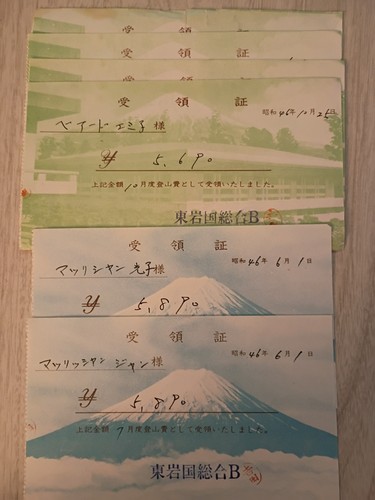 受領証
受領証
受領証
受領証
昭和46年10月25日
ベアードエミ子様
¥ 5,690
上記金額10月度登山費として受領いたしました。
東岩国総合B
受領証
昭和46年6月1日
マツリシャン 光子様
¥ 5,890
受領証
昭和46年6月1日
マツリッシャン ジャン様
¥ 5,890
上記金額7月度登山費として受領いたしました。
東岩国総合B